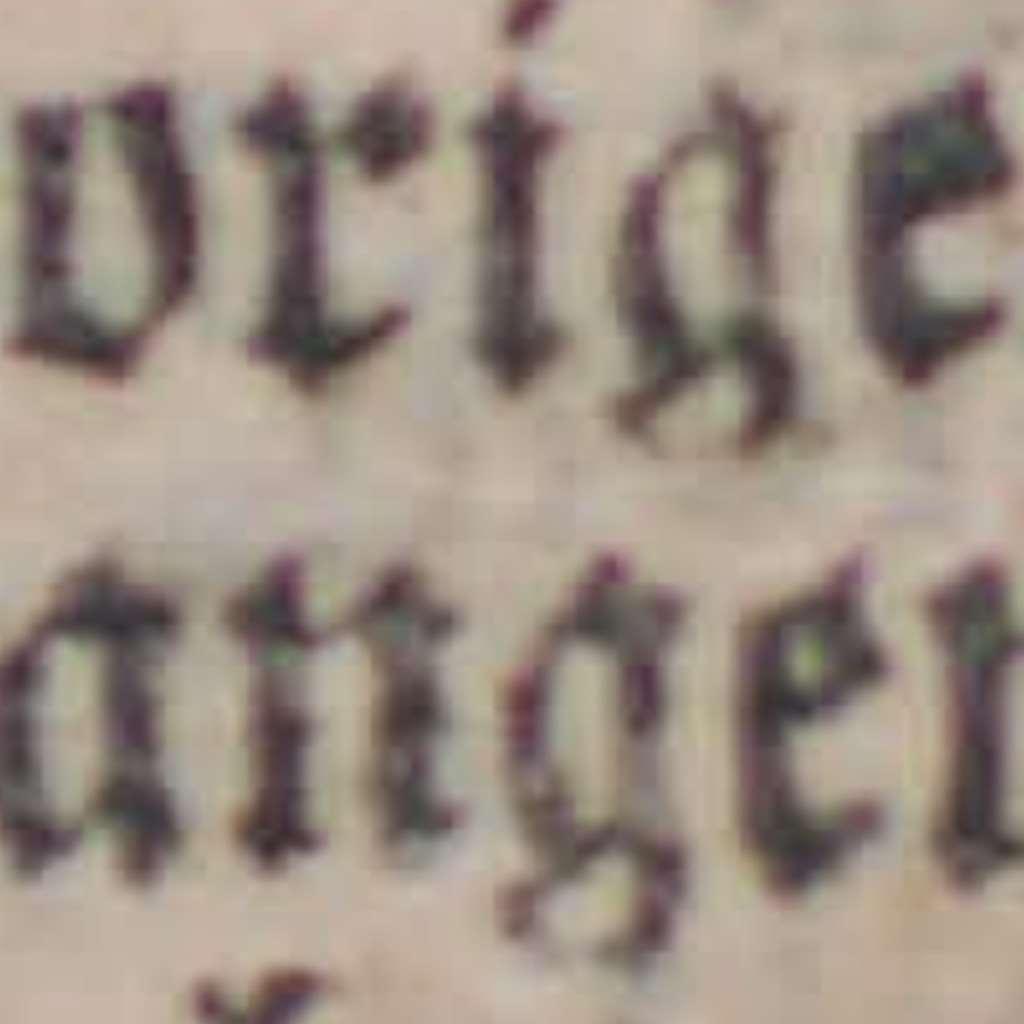 vrige
ange